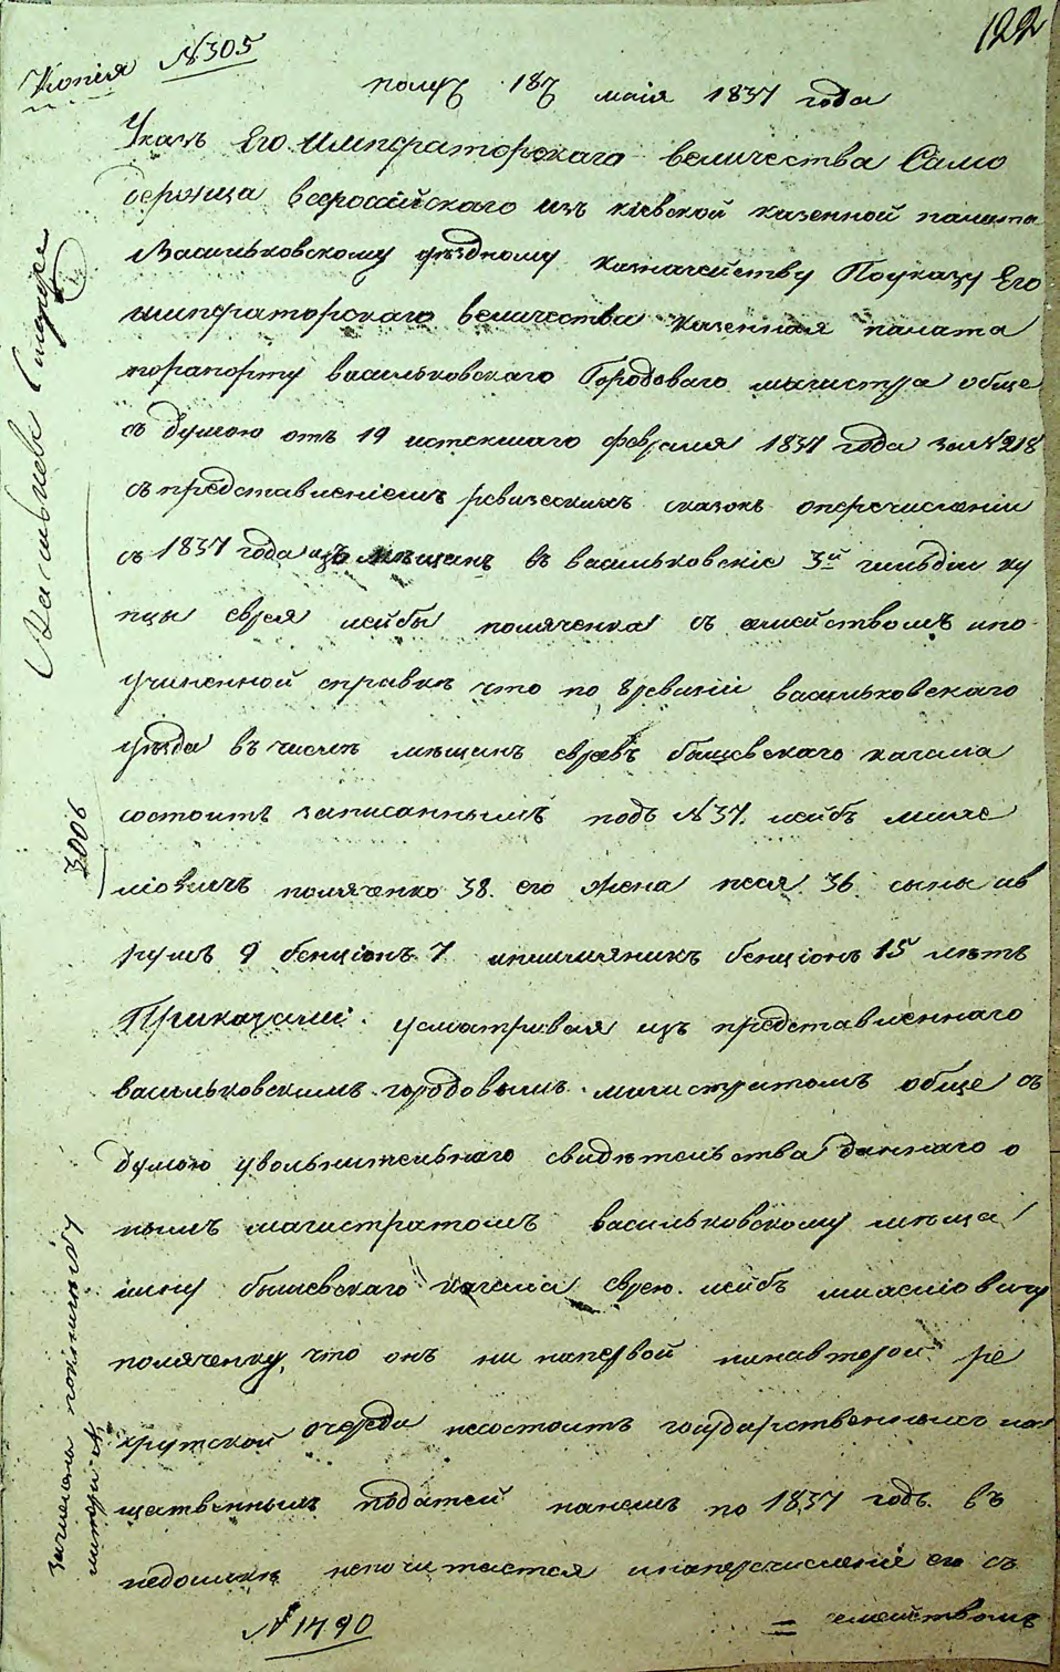 122
Копія №305
получ 18 маія 1837 года
Указъ Его Императорскаго величества Само
держца всероссійскаго изъ кіевской казенной палата
Васильковскому уѣздному казначейству Поуказу Его
императорскаго величества казенная палата
порапорту васильковскаго Городоваго магистра обще
съ думою отъ 19 истекшаго февраля 1837 года за №218
съ представленіемъ ревизскихъ сказокъ оперечисленіи
съ 1837 года изъ мѣщанъ въ васильковскіе 3й гильдіи ку
пцы еврея лейбы поляченка съ семействомъ ипо
учиненной справкѣ что по 8 ревизіи васильковскаго
уѣзда въ числѣ мѣщанъ евреевъ бышевскаго кагала
состоитъ записаннымъ подъ №37. лейбъ
поляченко 38. его жена песя 36 сыны ав
румъ 9 бенціонъ 7 бенціонъ 15 лѣтъ
Приказали: усматривая изъ представленнаго
васильковскимъ городовымъ магистратомъ обще съ
думою увольнительнаго свидѣтельства даннаго о
нымъ магистратомъ васильковскому мѣща
нину бышевскаго кагала еврею лейбъ
поляченку, что онъ ни напервой нинавторой ре
крутской очереди несостоитъ государственныхъ
щественныхъ податей нанемъ по 1837 годъ въ
недоимкѣ непочитается инаперечисленіе его съ
семействомъ
№1490
3006